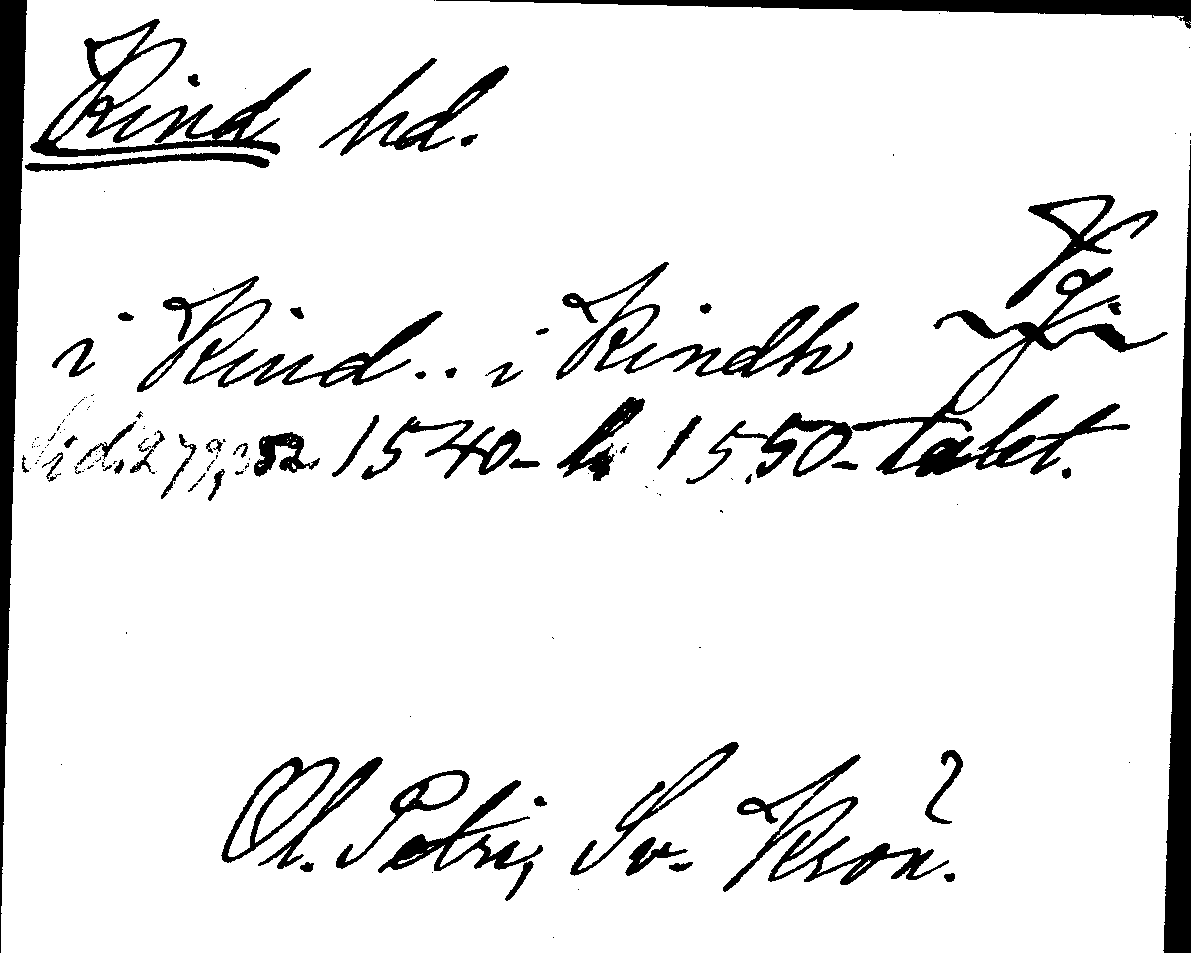 Kind hd.
i Kind.. i Kindh
Sid. 279, 352. 1540- 1550-talet.
Ol. Petri, Sv. Krön.